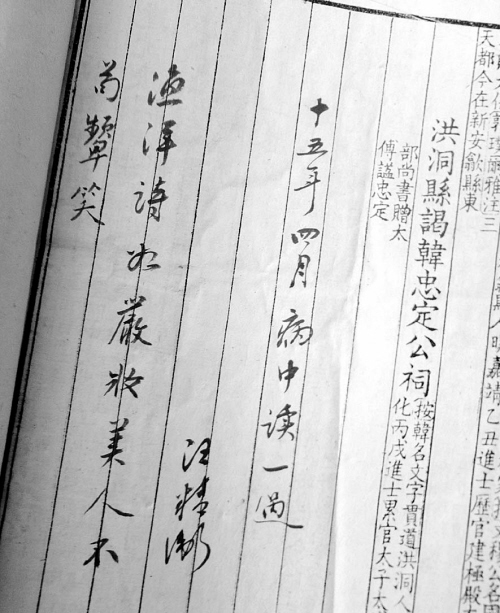 明嘉靖乙丑進士歷官建極殿
爾雅注三
天都今在新安歙縣東
洪洞縣謁韓忠定公祠
按韓名文字貫道洪洞人
化丙戌進士累官太子太
部尚書贈太
傅謚忠定
十五年四月病中读一過
汪精衛
漁洋詩如嚴妝美人不
苟顰笑